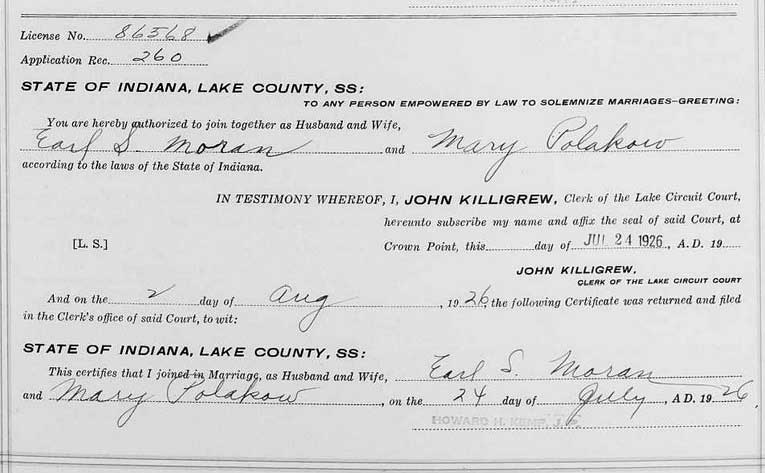 License No. 86568
Application Rec. 260
STATE OF INDIANA, LAKE COUNTY, SS:
TO ANY PERSON EMPOWERED BY LAW TO SOLEMNIZE MARRIAGES—GREETING:
You are hereby authorized to join together as Husband and Wife,
Earl S. Moran and Mary Polakow
according to the laws of the State of Indiana.
IN TESTIMONY WHEREOF, I, JOHN KILLIGREW, Clerk of the Lake Circuit Court,
hereunto subscribe my name and affix the seal of said Court, at
[L. S.] Crown Point, this day of JUL 24 1926, A. D. 19
JOHN KILLIGREW,
CLERK OF THE LAKE CIRCUIT COURT
And on the 2 day of Aug, 1926, the following Certificate was returned and filed
in the Clerk's office of said Court, to wit:
STATE OF INDIANA, LAKE COUNTY, SS:
This certifies that I joined in Marriage, as Husband and Wife, Earl S. Moran
and Mary Polakow, on the 24 day of July, A.D. 1926.
HOWARD H. KEMP, J.P.